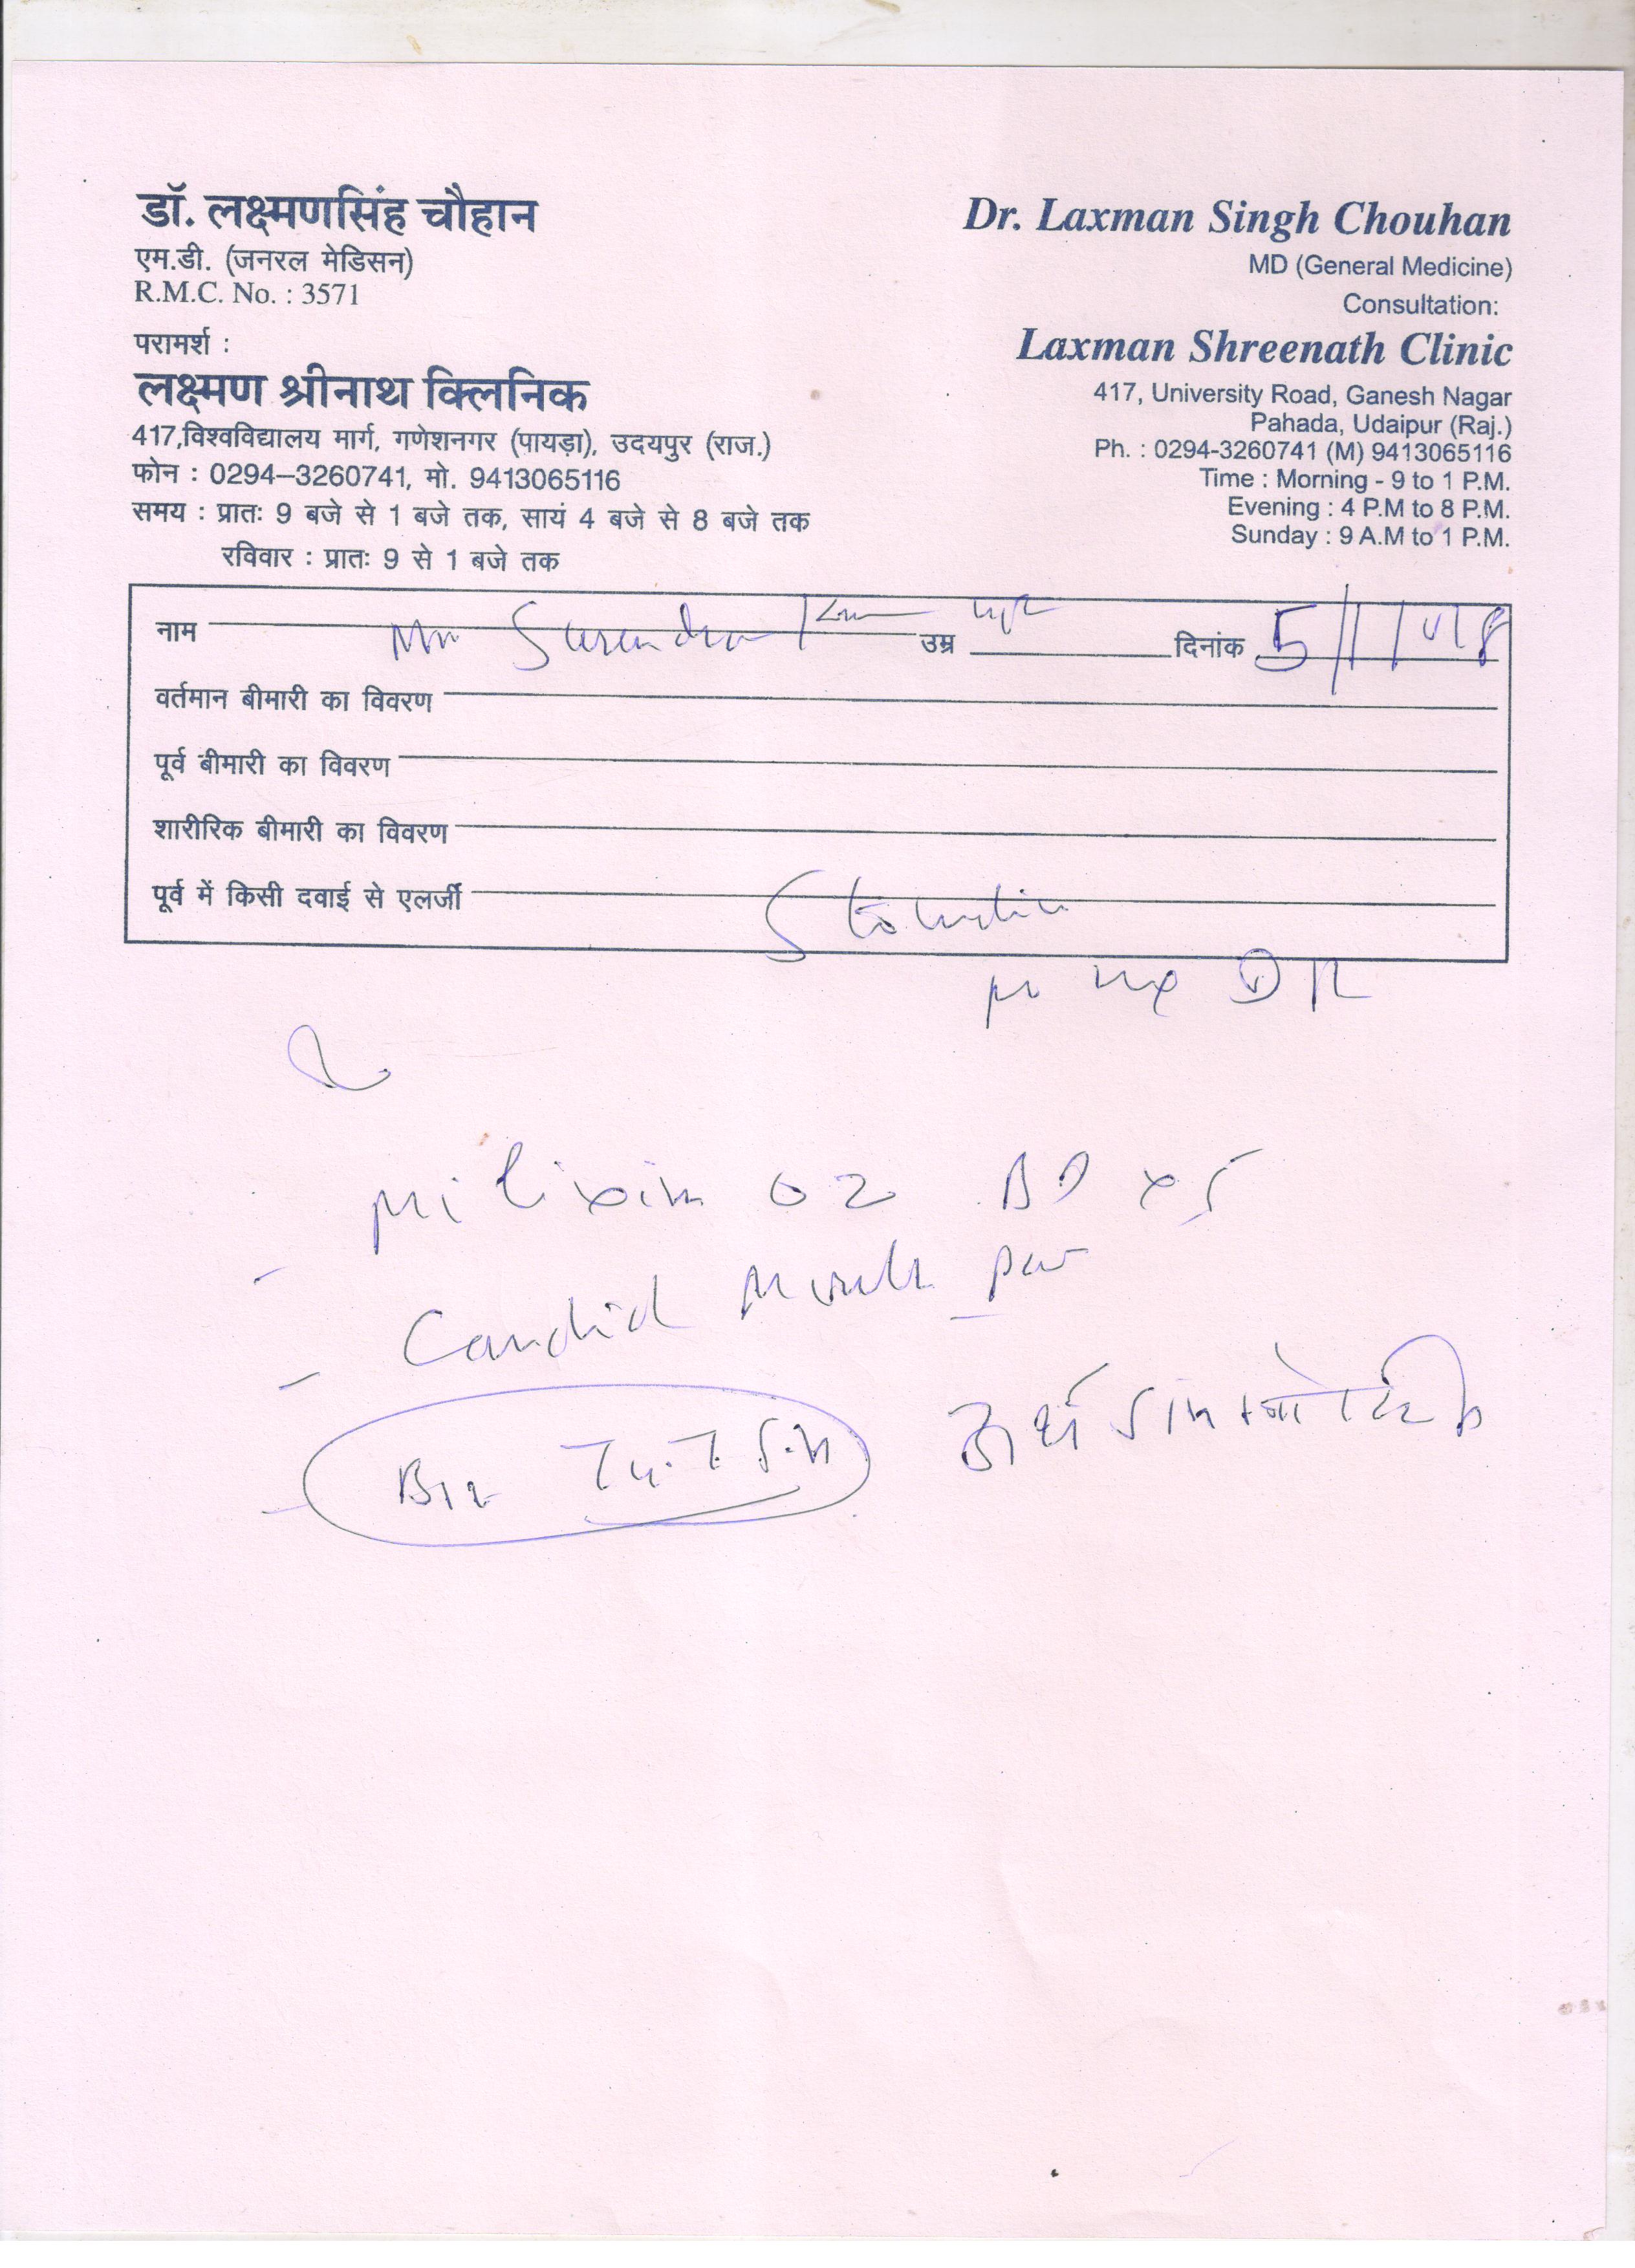 डॉ. लक्ष्मणसिंह चौहान
एम.डी. (जनरल मेडिसन)
R.M.C. No. : 3571
परामर्श :
लक्ष्मण श्रीनाथ क्लिनिक
417,विश्वविद्यालय मार्ग, गणेशनगर (पायड़ा), उदयपुर (राज.)
फोन : 0294–3260741, मो. 9413065116
समय : प्रातः 9 बजे से 1 बजे तक, सायं 4 बजे से 8 बजे तक
रविवार : प्रातः 9 से 1 बजे तक
Dr. Laxman Singh Chouhan
MD (General Medicine)
Consultation:
Laxman Shreenath Clinic
417, University Road, Ganesh Nagar
Pahada, Udaipur (Raj.)
Ph. : 0294-3260741 (M) 9413065116
Time : Morning - 9 to 1 P.M.
Evening : 4 P.M to 8 P.M.
Sunday : 9 A.M to 1 P.M.
नाम Mr Surendra उम्र दिनांक
वर्तमान बीमारी का विवरण
पूर्व बीमारी का विवरण
शारीरिक बीमारी का विवरण
पूर्व में किसी दवाई से एलर्जी
Milixim OZ BD x 5
Candid Mouth